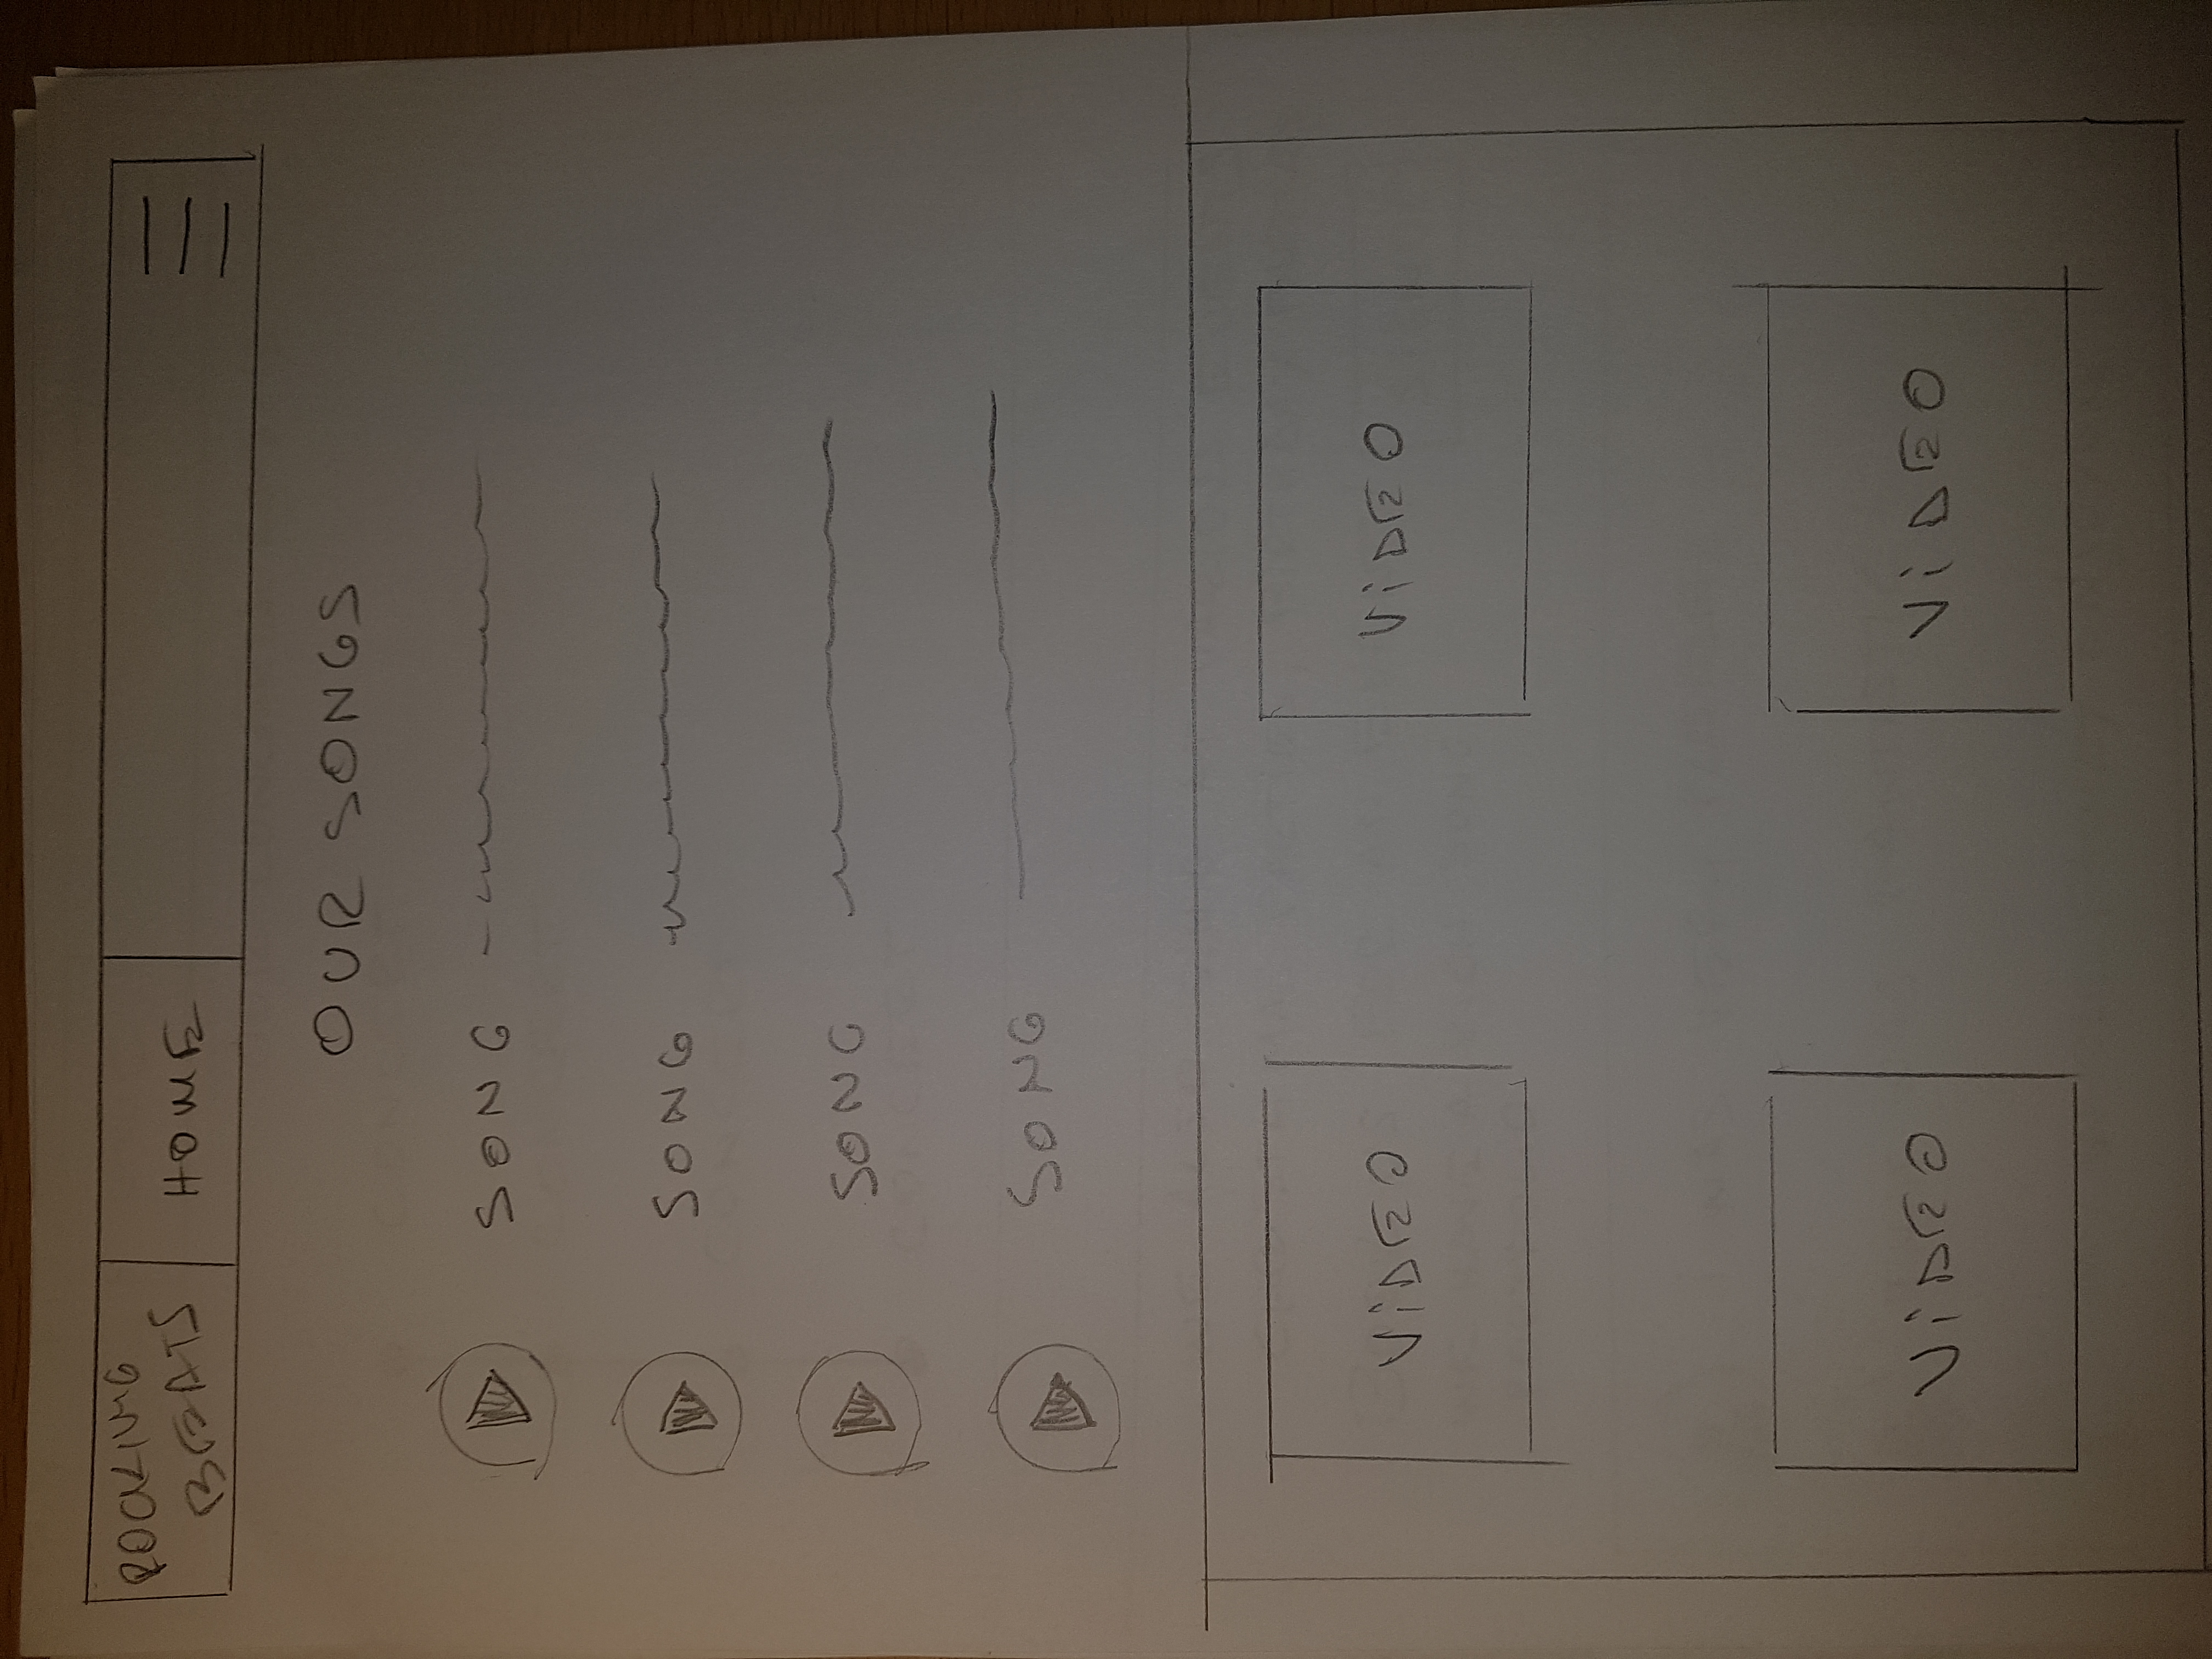 ROCKING
BEATS
HOME
OUR SONGS
SONG
SONG
SONG
SONG
VIDEO
VIDEO
VIDEO
VIDEO